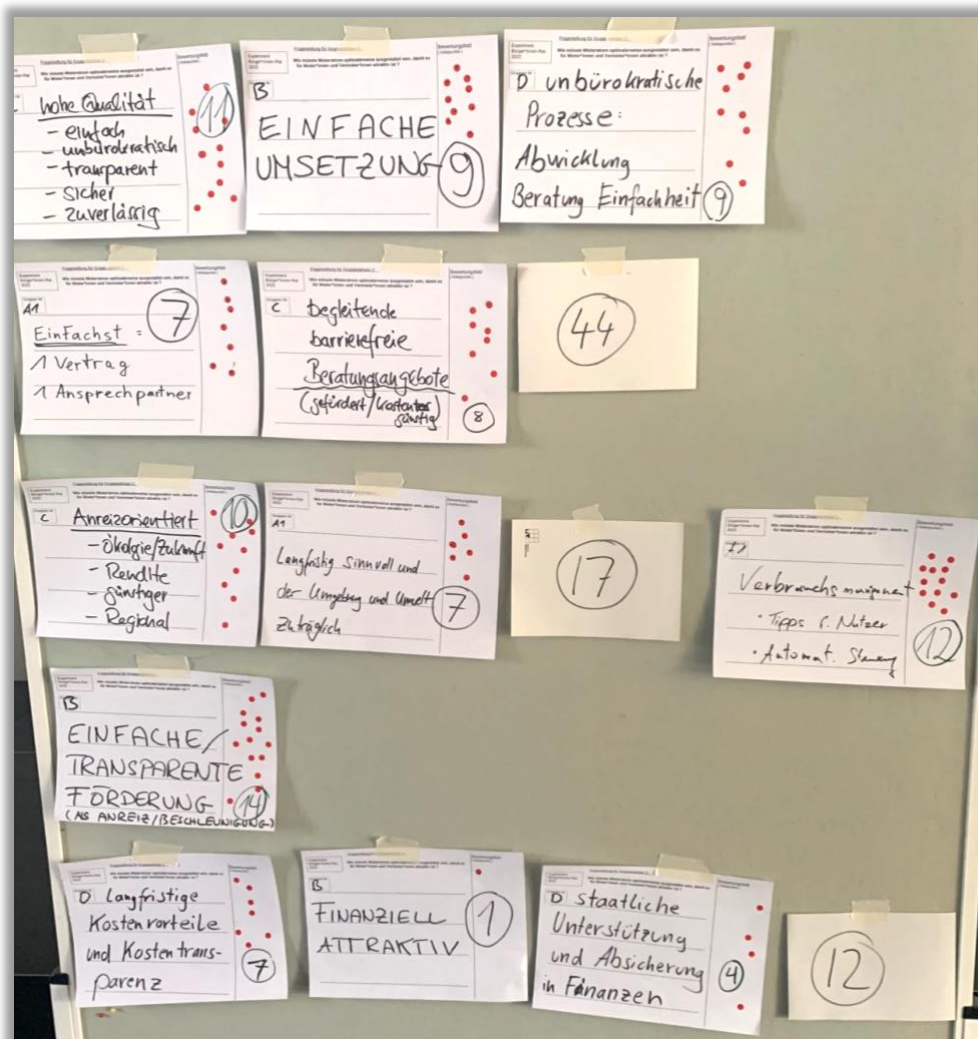 C hohe Qualität
11
- einfach
- unbürokratisch
- transparent
- Sicher
- zuverlässig
B
EINFACHE
UMSETZUNG
9
D unbürokratische
Prozesse:
Abwicklung
Beratung Einfachheit
9
A1
7
Einfachst =
1 Vertrag
1 Ansprechpartner
C begleitende
barrierefreie
Beratungsangebote
(gefördert/kosten
günstig)
8
44
C Anreizorientiert
10
- Ökolgie/Zukunft
- Rendite
- günstiger
- Regional
A1
Langfristig Sinnvoll und
der Umgebung und Umwelt
zuträglich
7
17
Verbrauchsmanagement
• Tipps f. Nutzer
• Automat. Steuerung
12
B
EINFACHE/
TRANSPARENTE
FÖRDERUNG
(ALS ANREIZ/BESCHLEUNIGUNG)
14
D langfristige
Kostenvorteile
und Kostentrans-
parenz
7
B
FINANZIELL
ATTRAKTIV
1
D staatliche
Unterstützung
und Absicherung
in Finanzen
4
12